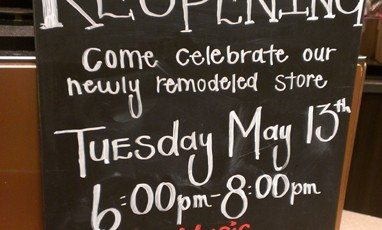 REOPENING
come celebrate our
newly remodeled store
Tuesday May 13th
6:00pm-8:00pm